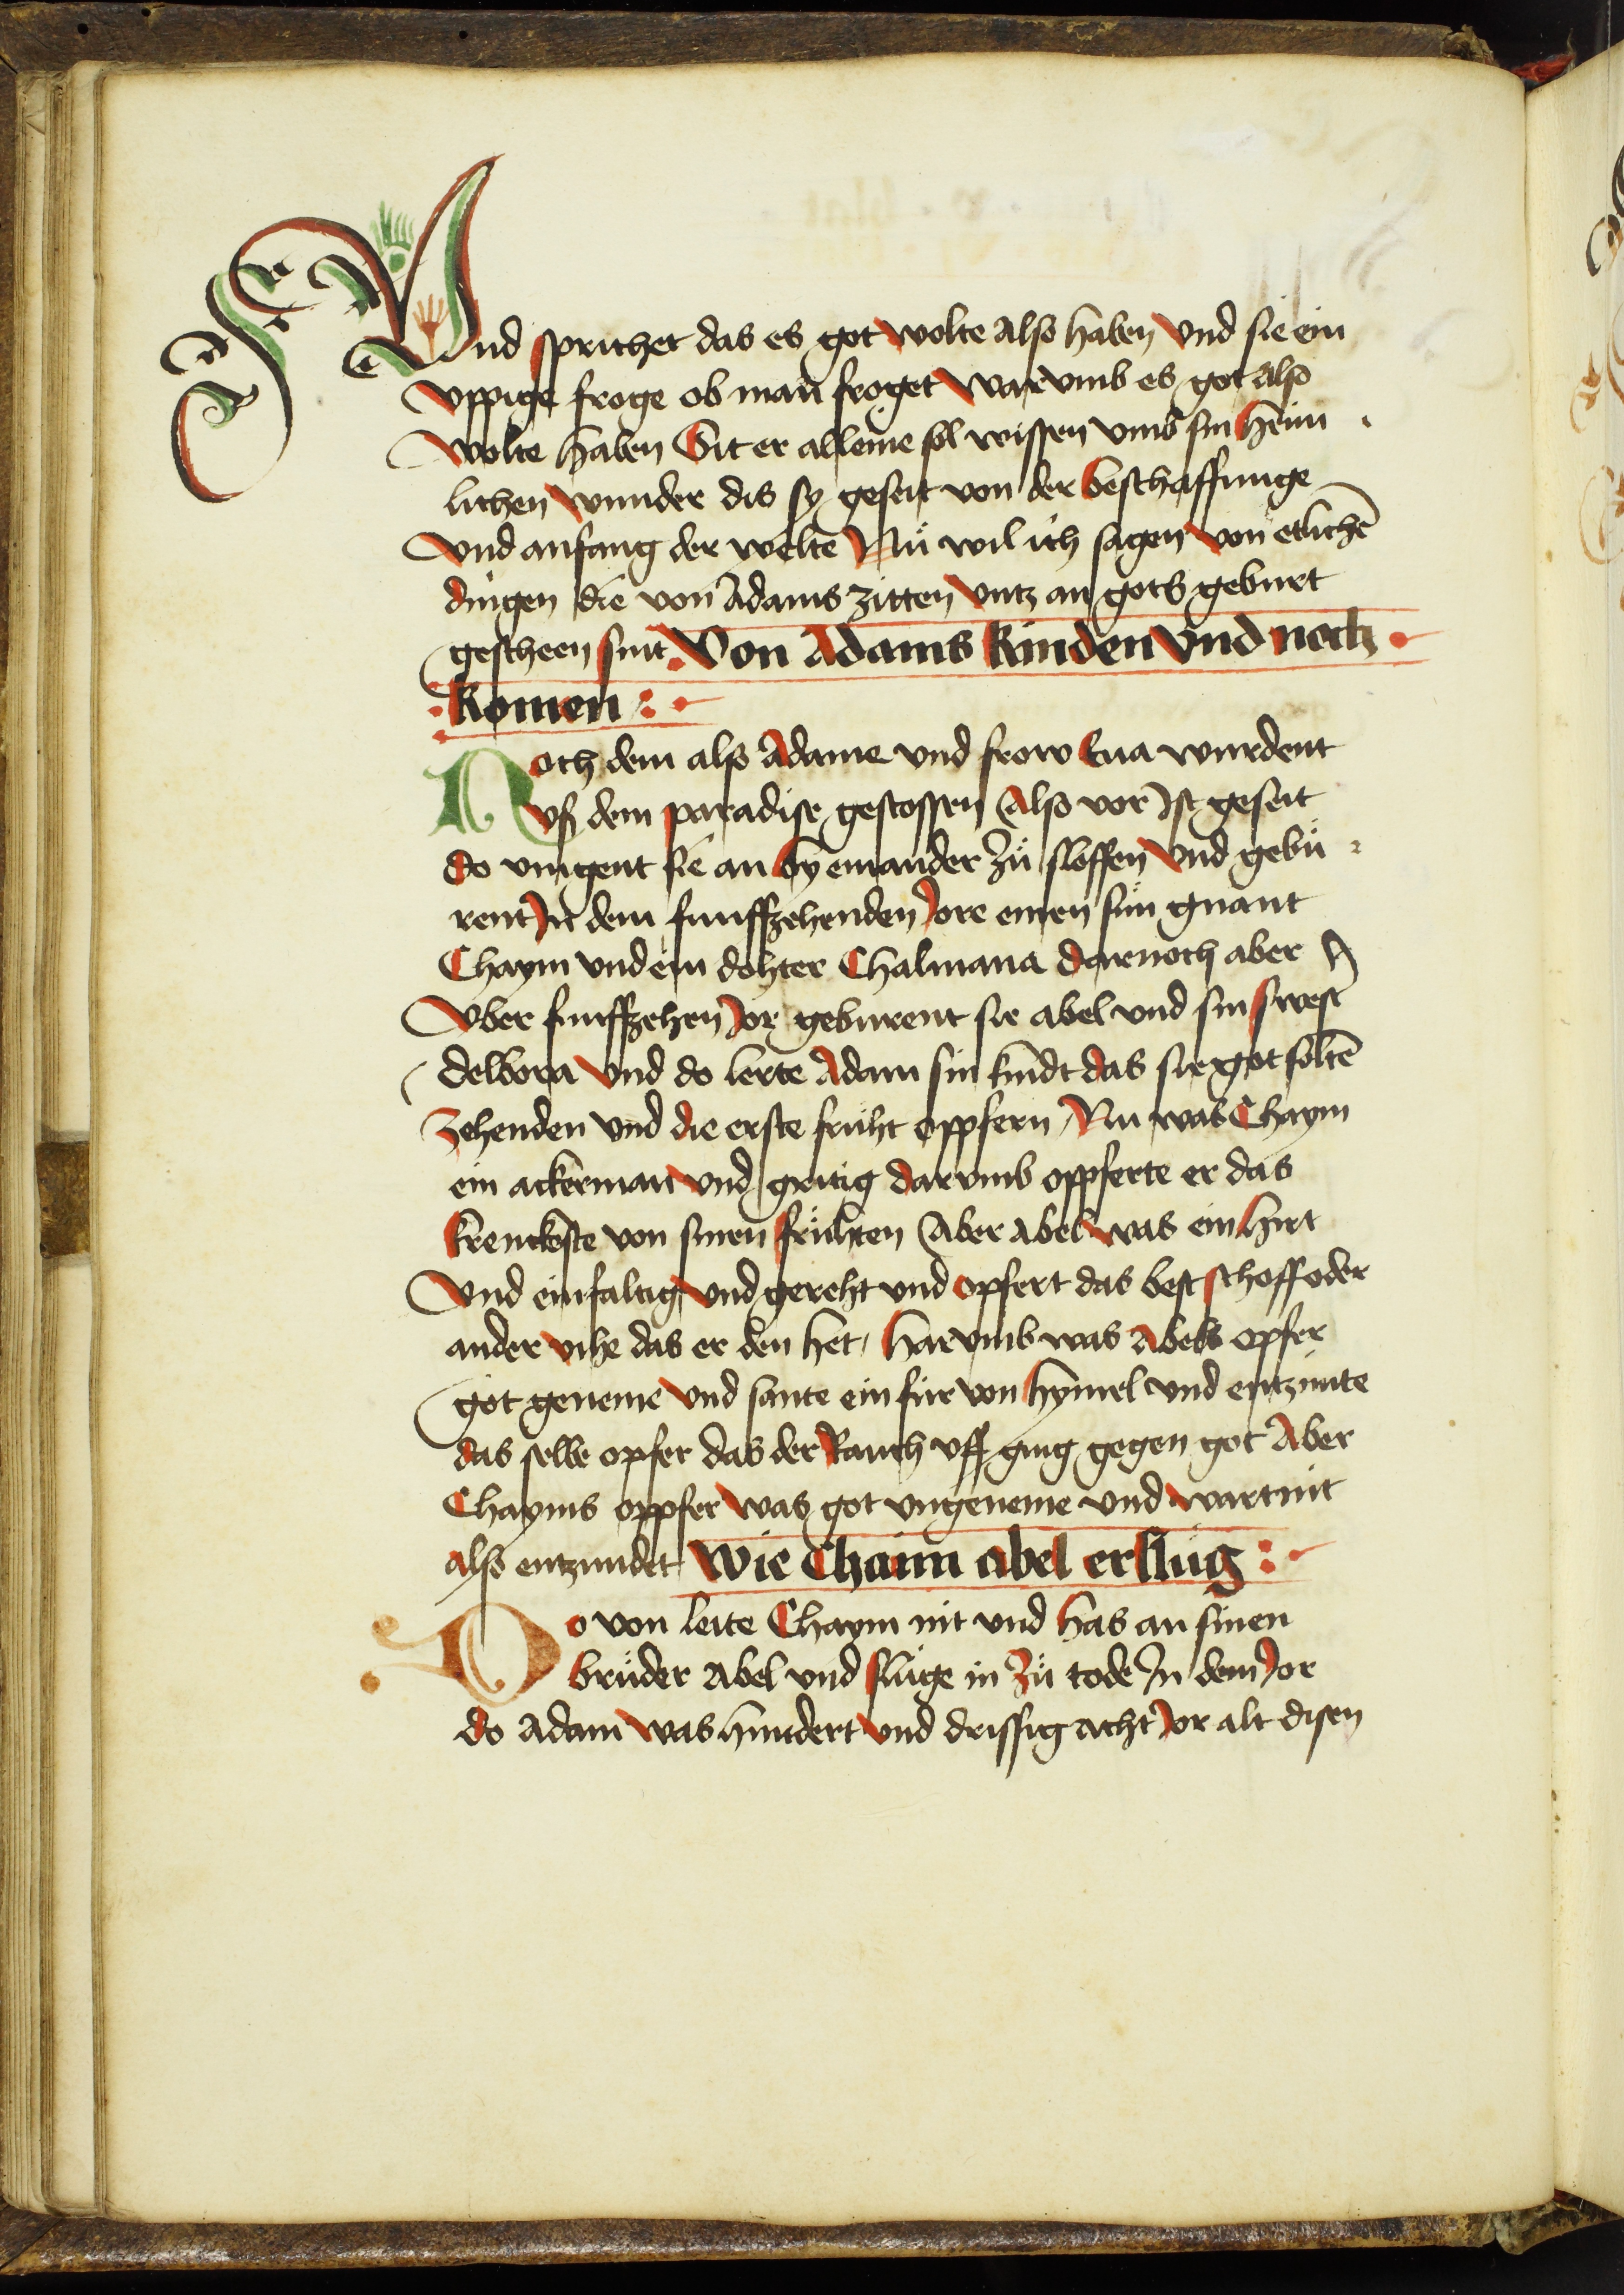 Und sprichet das es got wolte also haben vnd sie ein
vppige froge ob man froget warvmb es got also
wolte haben Sit er alleine sol wissen vmb sin heim
lichen wunder dis sy geseit von der beschaffunge
vnd anfang der welte Nuͦ wil ich sagen von etlichē
dingen die von Adams zitten vntz an gots geburt
gescheen sint Von Adams kinden vnd noch
komen
Noch dem also Adame vnd frow Eua wurdent
vß dem paradise gestossen Also vor ist geseit
do vingent sie an by einander zuͦ sloffen vnd gebuͦ
rent In dem funffzehenden Jore einen suͦn gnant
Chaym vnd ein dohter Chalmana darnoch aber
vber funffzehen Jor geburent sie abel vnd sin swest̄
delbora vnd do lerte Adam sin kindt das sie got soltē
zehenden vnd die erste fruht oppfern Nu was Chaym
ein ackerman vnd gritig darvmb oppferte er das
krenckeste von sinen fruͤhten Aber abel was ein hirt
vnd einfaltig vnd gereht vnd opfert das best schoff oder
ander vihe das er den het harvmb was Abels opfer
got geneme vnd sante ein für von hymel vnd entzunte
das selbe opfer das der Rauch vff ging gegen got Aber
Chayms oppfer was got vngeneme vnd wart nit
also entzundet Wie Chaim abel ersluͦg
Do von leite Chaym nit vnd has an sinen
bruͦder Abel vnd sluͦge in zuͦ tode In dem Jor
do Adam was hundert vnd drissig acht Jor alt disen